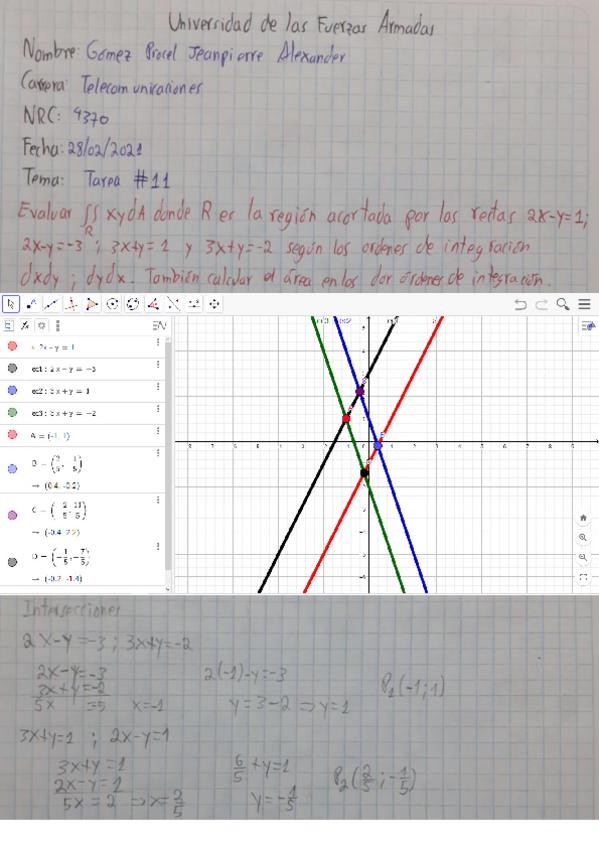 Universidad de las Fuerzas Armadas
Nombre: Gómez Procel Jeanpierre Alexander
Carrera: Telecomunicaciones
NRC: 4370
Fecha: 28/02/2021
Tema: Tarea #11
Evaluar ∬ xydA donde R es la región acortada por las rectas 2x-y=1;
R
2x-y=-3 ; 3x+y=1 y 3x+y=-2 según los ordenes de integración
dxdy ; dydx. También calcular el área en los dos órdenes de integración.
2x - y = 1
ec1: 2x - y = -3
ec2: 3x + y = 1
ec3: 3x + y = -2
A = (-1, 1)
B = (2/5, -1/5)
→ (0.4, -0.2)
C = (-2/5, 11/5)
→ (-0.4, 2.2)
D = (-1/5, -7/5)
→ (-0.2, -1.4)
Intersecciones
2x-y=-3 ; 3x+y=-2
2x-y=-3
3x+y=-2
5x =-5 x=-1
2(-1)-y=-3
y=3-2 ⇒ y=1
P1(-1;1)
3x+y=1 ; 2x-y=1
3x+y=1
2x-y=1
5x=2 ⇒ x=2/5
6/5 +y=1
y=-1/5
P2(2/5 ; -1/5)